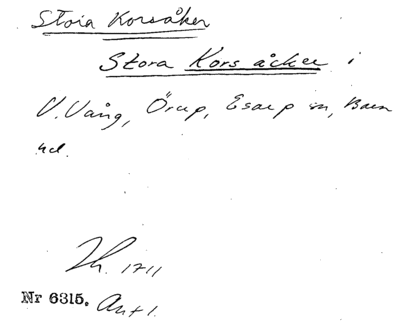 Stora Korsåker
Stora Kors åcker i
V. Vång, Örup, Esarp sn, Bara
hd.
Lh. 1711
Nr 6315. Ant 1.